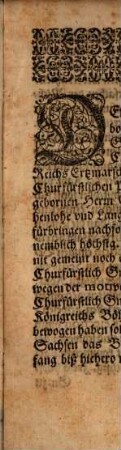 D E
Reichs Ertzmarsch
Churfürstlichen P
gebornen Herrn
henlohe vnd Lang
fürbringen nachfo
nemblich höchstg.
nit gemeint noch
Churfürstlich Gn
wegen der motwe
Churfürstlich Gn
Königreichs Böh
bewogen haben sol
Sachsen das B
fang biß hiehero